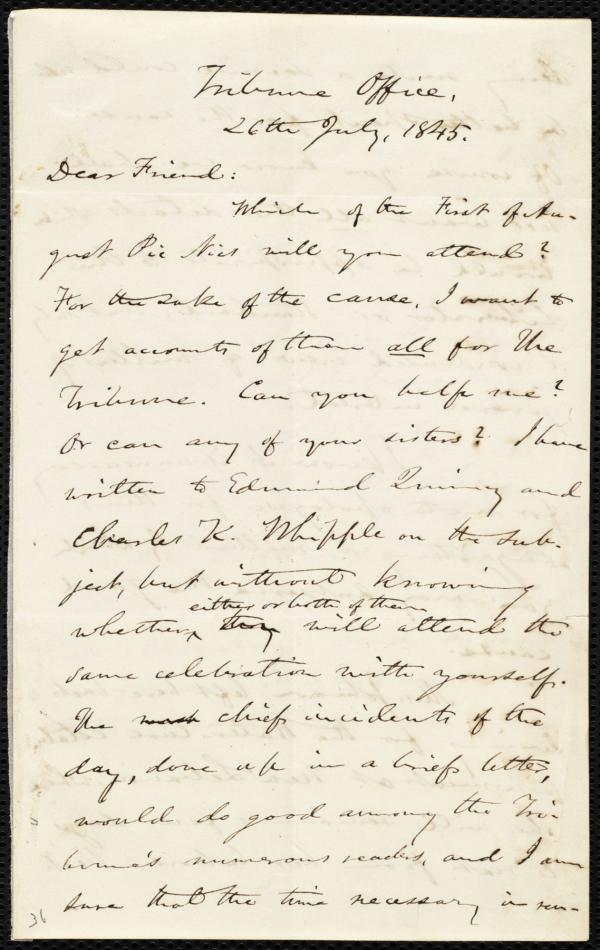 Tribune Office,
26th July, 1845.
Dear Friend:
Which of the First of Au-
gust Pic Nics will you attend?
For the sake of the cause, I want to
get accounts of them all for The
Tribune. Can you help me?
Or can any of your sisters? I have
written to Edmund Quincy and
Charles K. Whipple on the sub-
ject, but without knowing
either or both of them
whether they will attend the
same celebration with yourself.
The chief incidents of the
day, done up in a brief letter,
would do good among the Tri-
bune's numerous readers, and I am
sure that the time necessary in
36